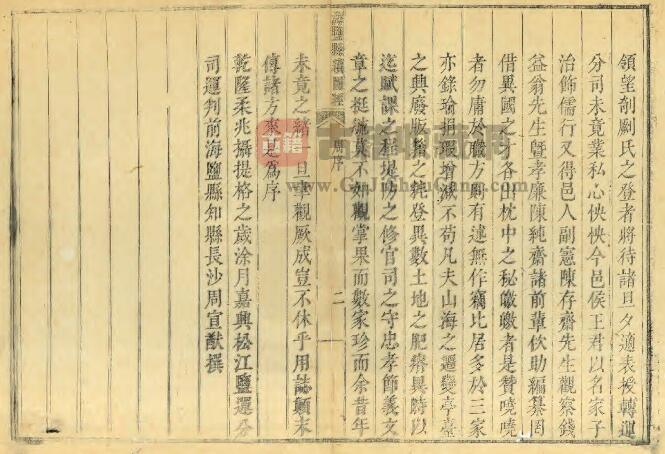 領望剞劂氏之登者將待諸旦夕適表授轉運
分司未竟業私心怏怏今邑侯王君以名家子
治飾儒行又得邑人副憲陳存齋先生觀察錢
益翁先生暨孝廉陳純齋諸前輩佽助編纂罔
借異國之才各出枕中之秘皦皦者是贊嘵嘵
者勿庸於職方則有述無作竊比居多於三家
亦錄瑜捐瑕增減不苟凡夫山海之遷變亭臺
之興廢版籍之耗登異數土地之肥瘠異時以
迄賦課之程堤防之修官司之守忠孝節義文
章之挺毓莫不如觀掌果而數家珍而余昔年
海鹽縣續圖經
周序
二
未竟之緒一旦幸觀厥成豈不休乎用誌顛末
傳諸方來是為序
乾隆柔兆攝提格之歲涂月嘉興松江鹽運分
司運判前海鹽縣知縣長沙周宣猷撰
古籍
www.GuJinShuCang.com